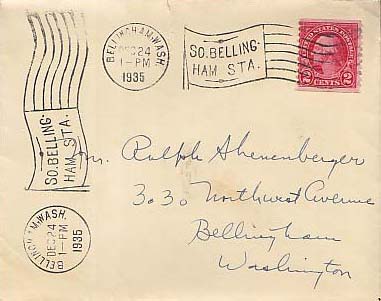 BELLINGHAM, WASH.
DEC 24
1-PM
1935
SO. BELLING-
HAM STA.
UNITED STATES POSTAGE
2 CENTS 2
SO. BELLING-
HAM STA.
BELLINGHAM, WASH.
DEC 24
1-PM
1935
Mr. Ralph Shenenberger
3030 Northwest Avenue
Bellingham
Washington